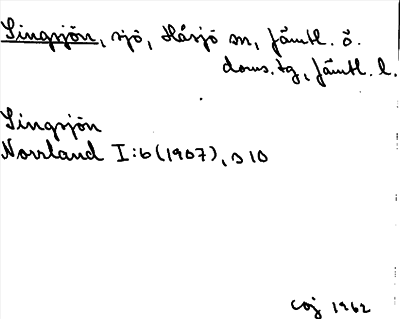 Singsjön, sjö, Hásjö sn, Jämtl. ö.
doms.tg, Jämtl. l.
Singsjön
Norrland I:6 (1907), s 10
coj 1962